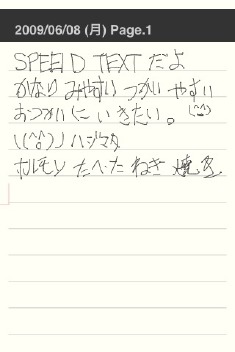 2009/06/08 (月) Page.1
SPEED TEXT だよ
かなり みやすい つかい やすい
おつかい に いきたい。(^^)
\(^o^)/ ハジマタ
ホルモン たべた ねぎ 焼き